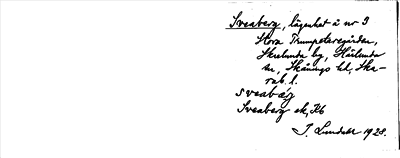 Sveaberg, lägenhet å nr 3
Stora Trumpetaregården,
Skerlunda by, Härlunda
sn, Skånings hd, Ska-
rab. l.
sveabærj
Sveaberg ek, Kb
J. Lundahl 1928.